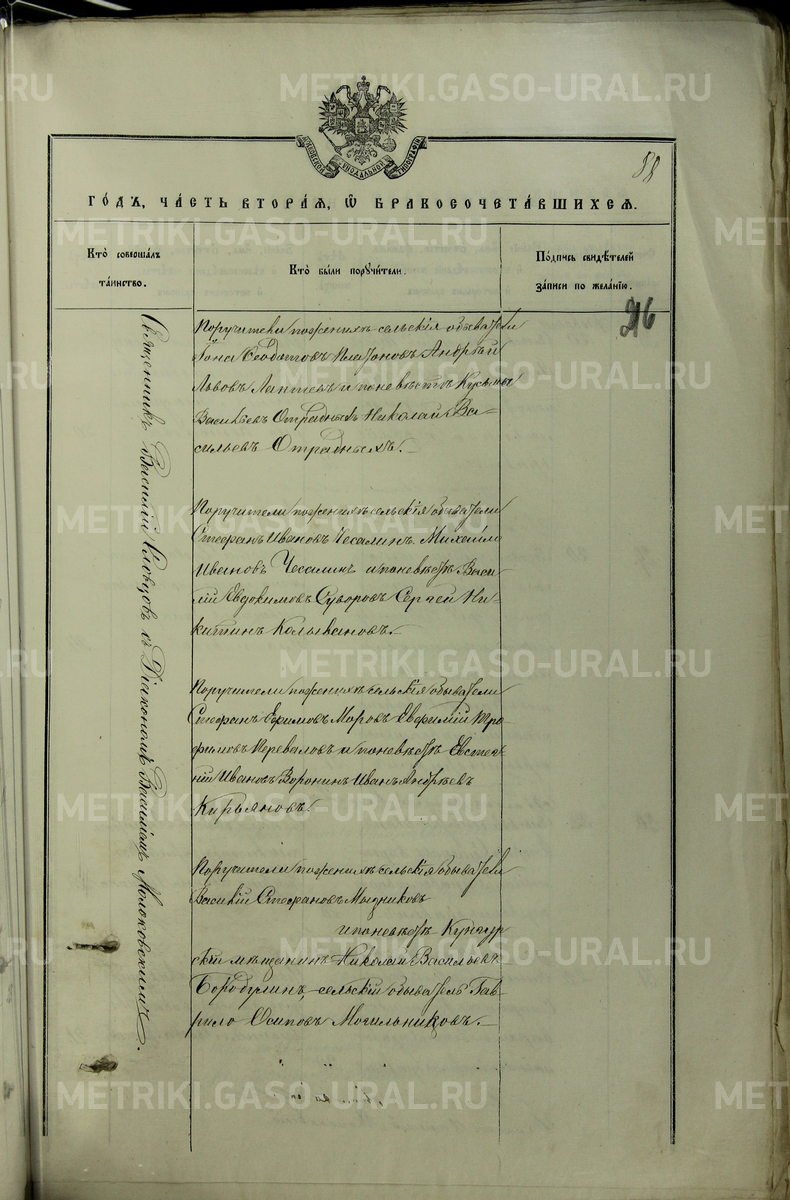 МОСКОВСКОЙ СѴНОДАЛЬНОЙ ТИПОГРАФІИ
58
ГО́ДЪ, ЧА́СТЬ ВТОРА́Я, Ѿ БРАКОСОЧЕТА́ВШИХСЯ.
Кто̀ совершалъ
та́инство.
Кто̀ бы́ли поручи́тели.
По́дпись свидѣ́телей
за́писи по жела́нію.
216
Священникъ Василій Словцовъ съ Діакономъ Василіемъ
Поручители по женихѣ сельскія обыватели
Іона Ѳеодотовъ Платоновъ Андрей
Львовъ Лаптевъ и по невѣстѣ Кузьма
Васильевъ Отрадныхъ Николай Ва-
сильевъ Отрадныхъ.
Поручители по женихѣ сельскія обыватели
Стефанъ Ивановъ Чесалинъ Михаилъ
Ивановъ Чесалинъ и по невѣстѣ Васи
лій Евдокимовъ Суворовъ Сергей Ни-
китинъ Колывановъ.
Поручители по женихѣ сельскія обыватели
Стефанъ Ефимовъ Моровъ Евфимій Тро
фимовъ Перваловъ и по невѣстѣ Евсте
ній Ивановъ Воронинъ Иванъ Андреевъ
Кирьяновъ.
Поручители по женихѣ сельскія обыватели
Василій Стефановъ Мызниковъ
и по невѣстѣ Кунгур
скій мѣщанинъ Николай Васильевъ
Бородулинъ, сельскій обыватель Гав
рило Осиповъ Могильниковъ.
METRIKI.GASO-URAL.RU